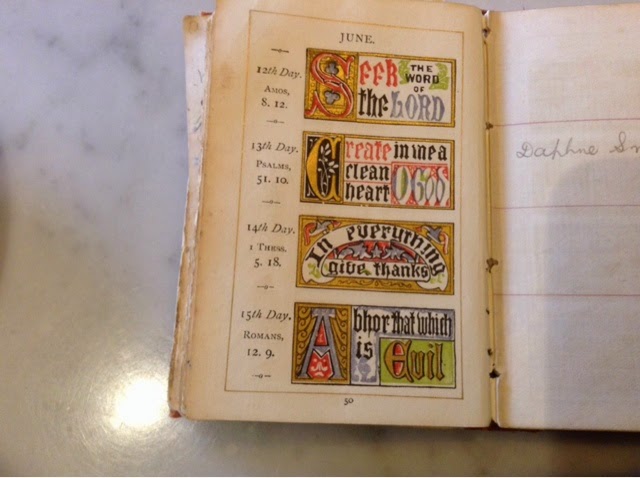 JUNE.
12th Day.
AMOS,
8. 12.
SEEK THE WORD OF
the LORD
13th Day.
PSALMS,
51. 10.
Create in me a
clean
heart O GOD
14th Day.
1 THESS.
5. 18.
In everything
give thanks
15th Day.
ROMANS,
12. 9.
Abhor that which
is Evil
50
Daphne